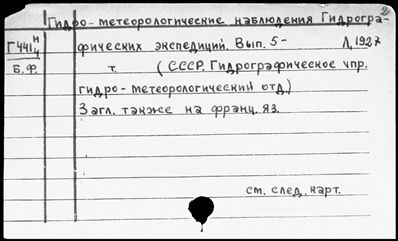 2
Гидро-метеорологические наблюдения Гидрогра-
Г441 н/4 фических экспедиций. Вып. 5- Л, 1927
Б.Ф. т. (СССР. Гидрографическое упр.
гидро-метеорологический отд.)
Загл. также на франц. яз.
см. след. карт.